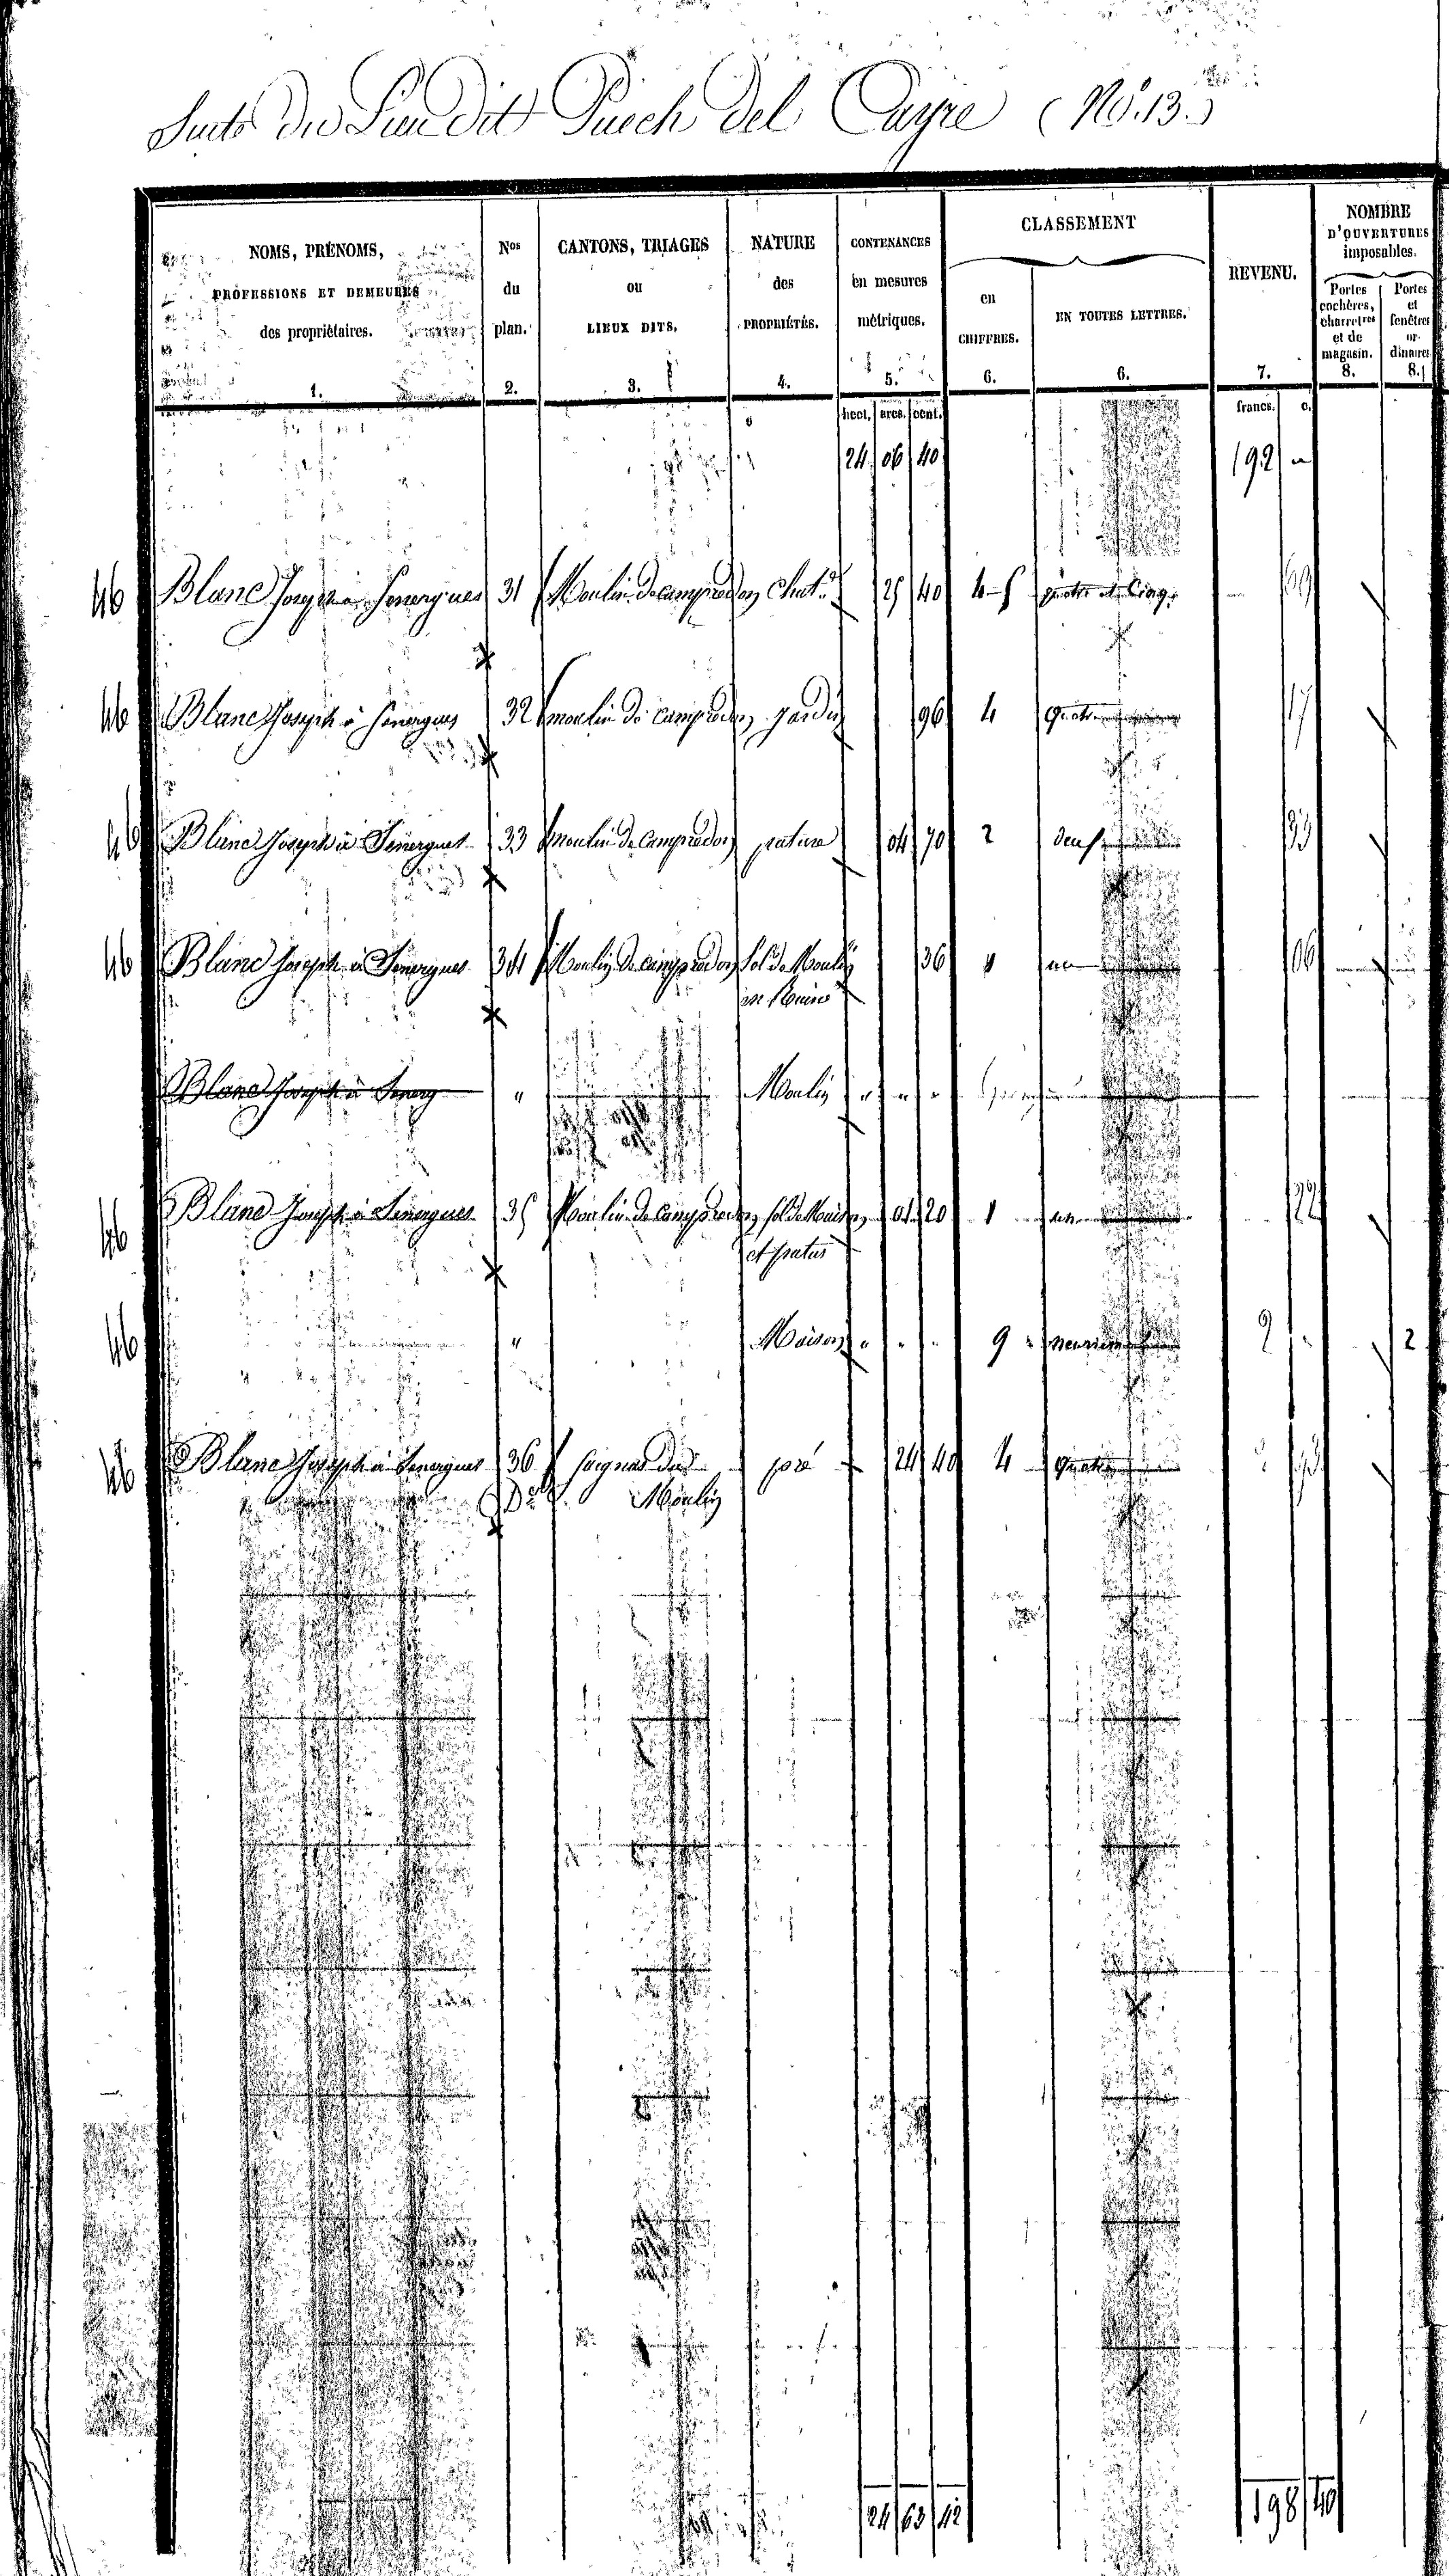 Suite du Lieu dit Puech del Cayre (No. 13.)
NOMS, PRÉNOMS, PROFESSIONS ET DEMEURES des propriétaires. 1.
Nos du plan. 2.
CANTONS, TRIAGES ou LIEUX DITS. 3.
NATURE des PROPRIÉTÉS. 4.
CONTENANCES en mesures métriques. 5.
CLASSEMENT
en CHIFFRES. 6.
EN TOUTES LETTRES. 6.
REVENU. 7.
NOMBRE D'OUVERTURES imposables.
Portes cochères, charretres et de magasin. 8.
Portes et fenêtres or- dinaires 8.
hect. ares. cent. francs. c.
24 06 40 192 "
46 Blanc Joseph à Senergues 31 Moulin de Campredon Chat. 25 40 4-5 quatre et Cinq.
46 Blanc Joseph à Senergues 32 moulin de Campredon jardin 96 4 quatre 17
46 Blanc Joseph à Senergues 33 moulin de Campredon pature 04 70 2 deux 33
46 Blanc Joseph à Senergues 34 Moulin de Campredon Sol de Moulin 36 06
en Ruine
Blanc Joseph à Senerg " Moulin " " "
46 Blanc Joseph à Senergues 35 Moulin de Campredon sol de Maison 01 20 1 22
et patus
46 " Maison " " " 9 neuvième 2 2
46 Blanc Joseph à Senergues 36 Moulin pré 24 40 4 quatre
24 63 42 198 40